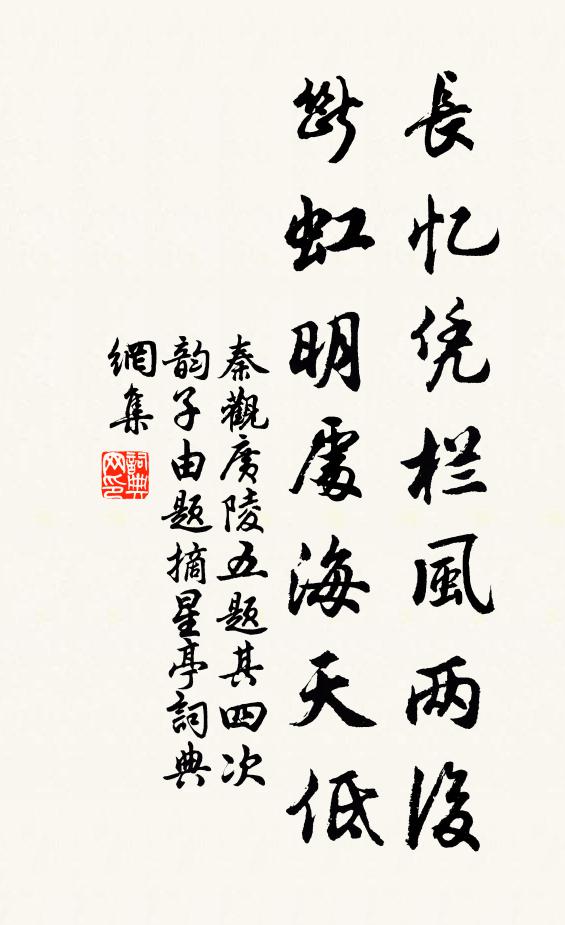 長忆凭栏風两後
断虹明處海天低
秦觀廣陵五題其四次
韵子由題摘星亭詞典
網集
詞典網印